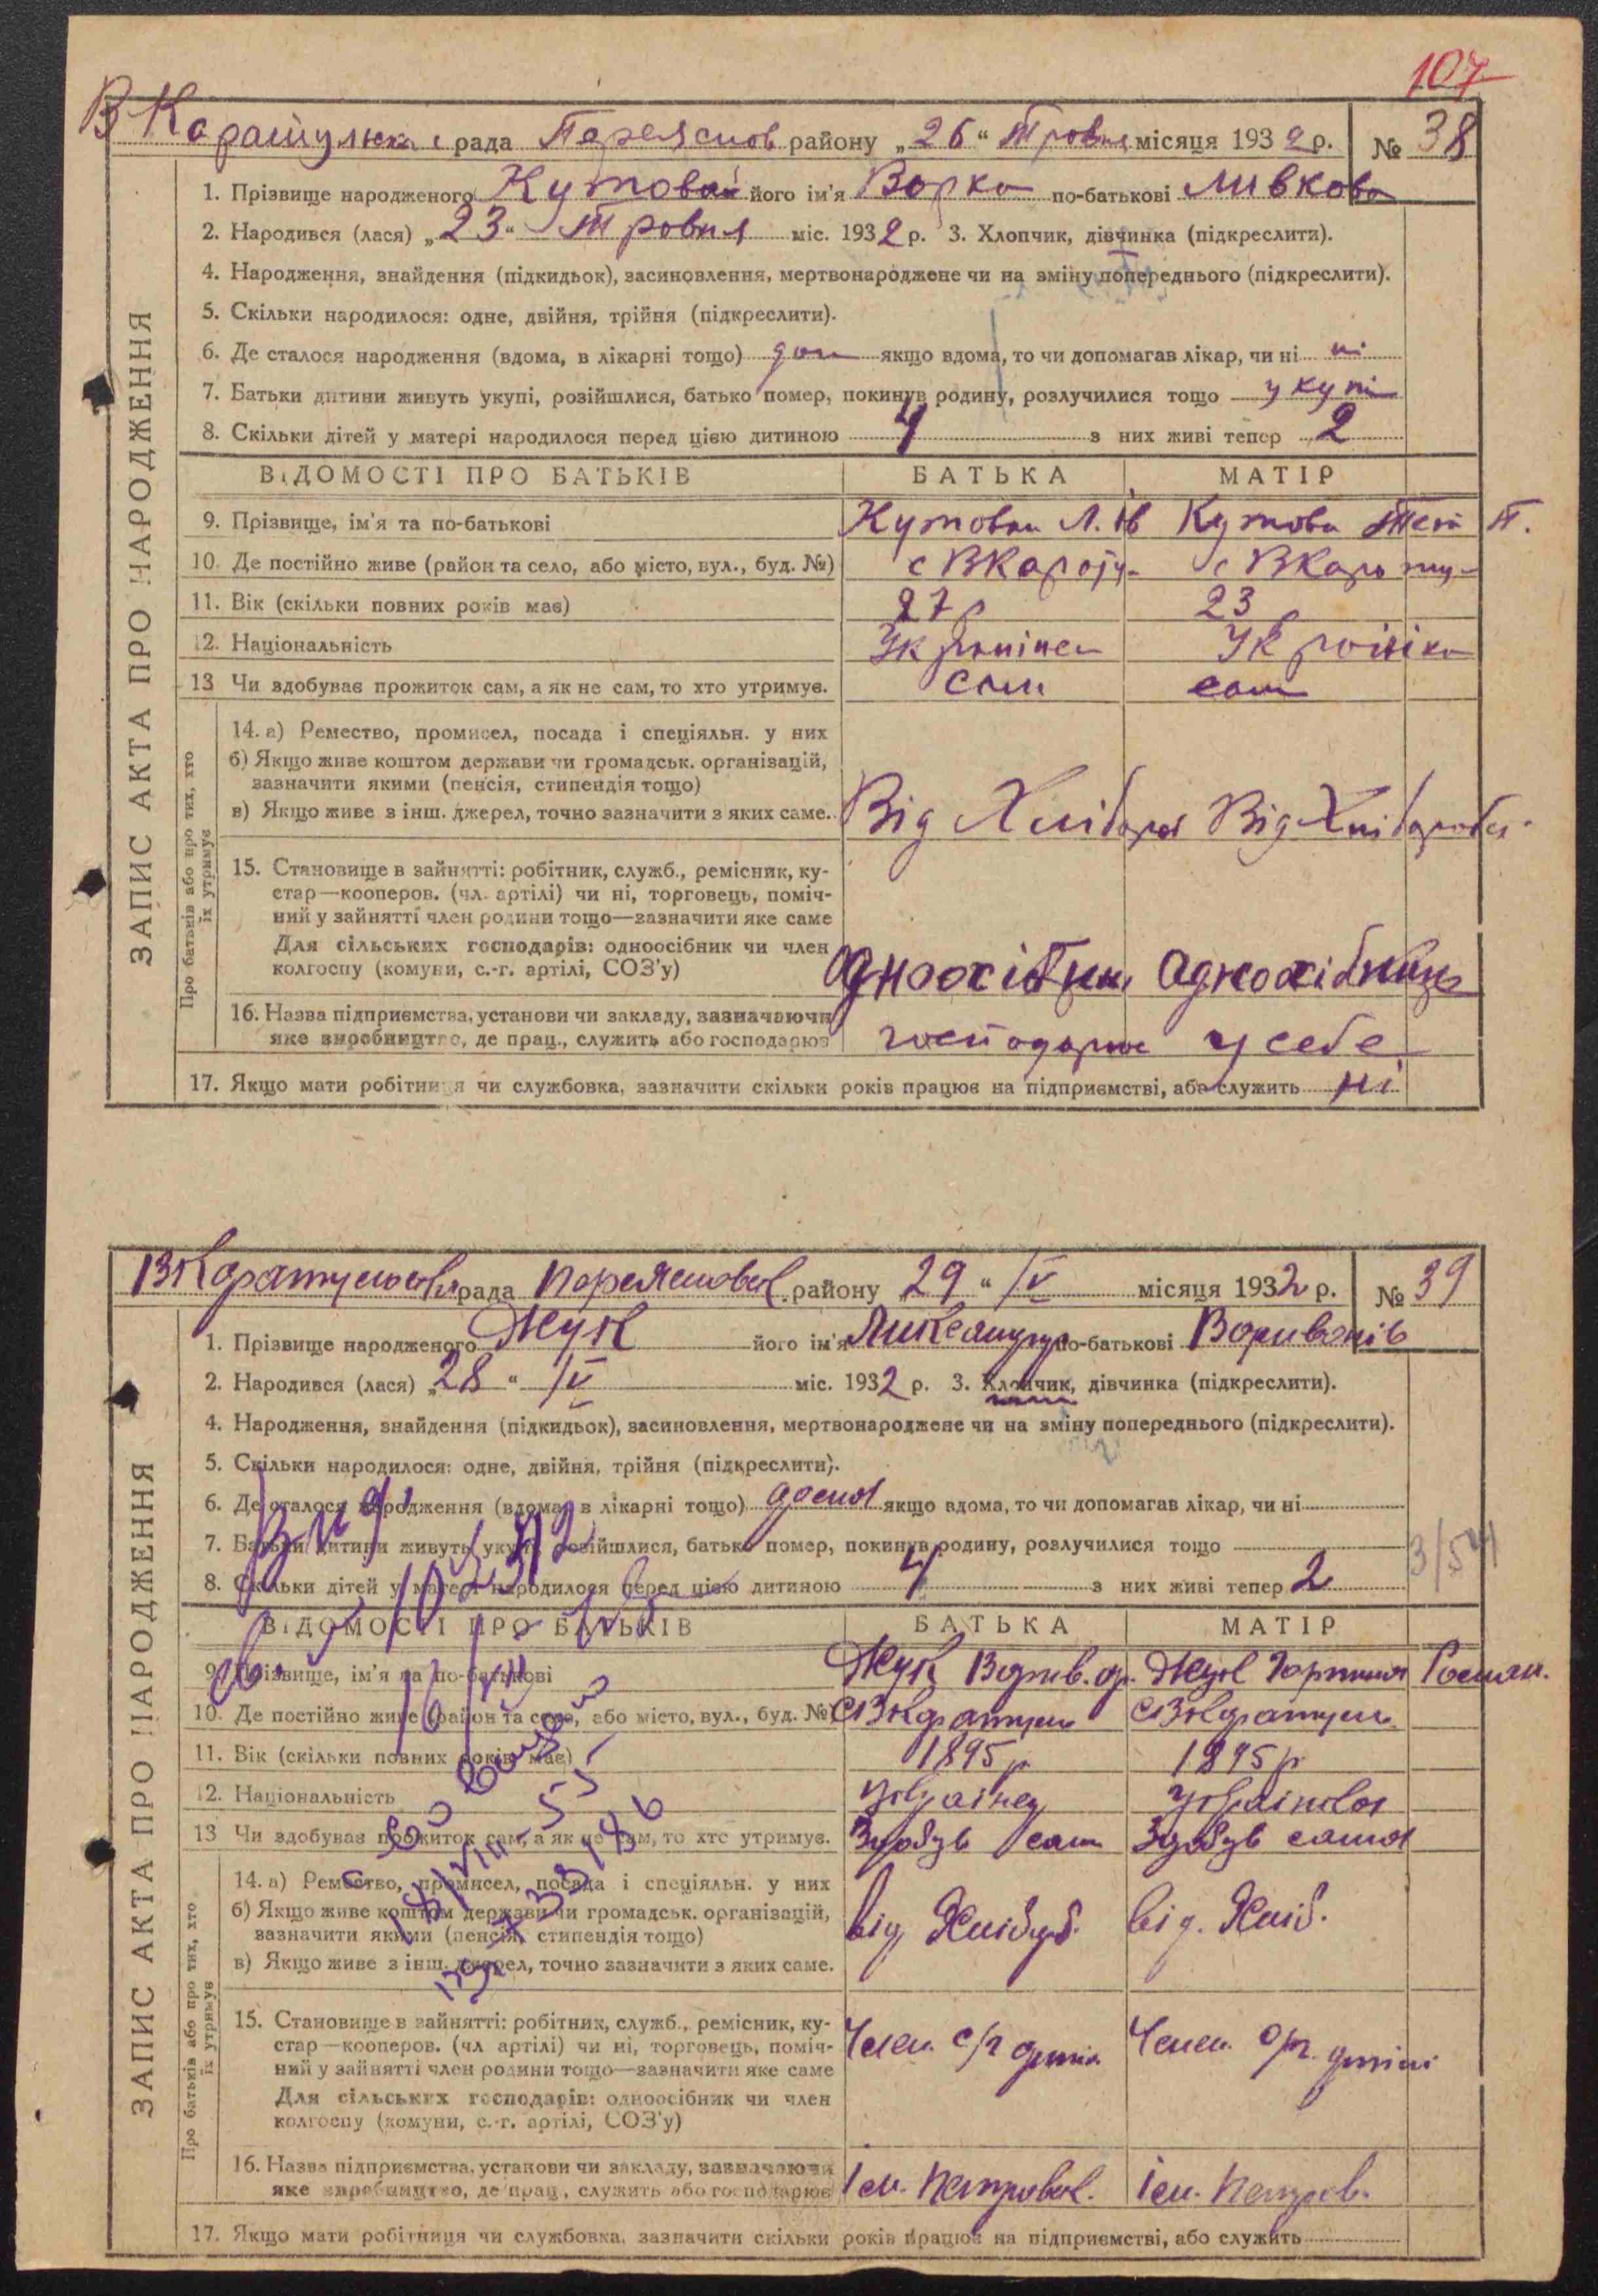 107
В Каратулька с рада Переяслов району „26“ Травня місяця 1932 р. № 38
1. Прізвище народженого Кутовая його ім'я Варка по-батькові Ливкова
2. Народився (лася) „23“ Травня міс. 1932 р. 3. Хлопчик, дівчинка (підкреслити).
4. Народження, знайдення (підкидьок), засиновлення, мертвонароджене чи на зміну попереднього (підкреслити).
5. Скільки народилося: одне, двійня, трійня (підкреслити).
6. Де сталося народження (вдома, в лікарні тощо) дом якщо вдома, то чи допомагав лікар, чи ні ні
7. Батьки дитини живуть укупі, розійшлися, батько помер, покинув родину, розлучилися тощо укупі
8. Скільки дітей у матері народилося перед цією дитиною 4 з них живі тепер 2
ВІДОМОСТІ ПРО БАТЬКІВ БАТЬКА МАТІР
9. Прізвище, ім'я та по-батькові Кутовий Л. Ів Кутова Тет Т.
10. Де постійно живе (район та село, або місто, вул., буд. №) с ВКарату- с ВКарату-
11. Вік (скільки повних років має) 27 р 23 р
12. Національність Українец Українка
13 Чи здобуває прожиток сам, а як не сам, то хто утримує. сам сам
14. а) Ремество, промисел, посада і спеціяльн. у них
б) Якщо живе коштом держави чи громадськ. організацій,
зазначити якими (пенсія, стипендія тощо)
в) Якщо живе з інш. джерел, точно зазначити з яких саме. Від Хлібороб Від Хліборобст.
15. Становище в зайнятті: робітник, служб., ремісник, ку-
стар—кооперов. (чл. артілі) чи ні, торговець, поміч-
ний у зайнятті член родини тощо—зазначити яке саме
Для сільських господарів: одноосібник чи член
колгоспу (комуни, с.-г. артілі, СОЗ'у) Одноосібник Одноосібниця
16. Назва підприємства, установи чи закладу, зазначаючи
яке виробництво, де прац., служить або господарює господарює у себе
17. Якщо мати робітниця чи службовка, зазначити скільки років працює на підприємстві, або служить ні
ЗАПИС АКТА ПРО НАРОДЖЕННЯ
Про батьків або про тих, хто
їх утримує
ВКаратульська рада Переяславськ. району „29“ IV місяця 1932 р. № 39
1. Прізвище народженого Жук його ім'я по-батькові
2. Народився (лася) „28“ IV міс. 1932 р. 3. Хлопчик, дівчинка (підкреслити).
4. Народження, знайдення (підкидьок), засиновлення, мертвонароджене чи на зміну попереднього (підкреслити).
5. Скільки народилося: одне, двійня, трійня (підкреслити).
6. Де сталося народження (вдома, в лікарні тощо) дома якщо вдома, то чи допомагав лікар, чи ні
7. Батьки дитини живуть укупі, розійшлися, батько помер, покинув родину, розлучилися тощо
8. Скільки дітей у матері народилося перед цією дитиною 4 з них живі тепер 2
3/54
ВІДОМОСТІ ПРО БАТЬКІВ БАТЬКА МАТІР
9. Прізвище, ім'я та по-батькові Жук Жук
10. Де постійно живе (район та село, або місто, вул., буд. №) с ВКаратуль с ВКаратуль
11. Вік (скільки повних років має) 1895 р 1895 р
12. Національність Українец Українка
13 Чи здобуває прожиток сам, а як не сам, то хто утримує. Здобув сам Здобув сама
14. а) Ремество, промисел, посада і спеціяльн. у них
б) Якщо живе коштом держави чи громадськ. організацій,
зазначити якими (пенсія, стипендія тощо)
в) Якщо живе з інш. джерел, точно зазначити з яких саме. від Хлібороб. від. Хліб.
15. Становище в зайнятті: робітник, служб., ремісник, ку-
стар—кооперов. (чл. артілі) чи ні, торговець, поміч-
ний у зайнятті член родини тощо—зазначити яке саме
Для сільських господарів: одноосібник чи член
колгоспу (комуни, с.-г. артілі, СОЗ'у) Член. с/г артіл Член. с/г. артілі
16. Назва підприємства, установи чи закладу, зазначаючи
яке виробництво, де прац., служить або господарює Ім. Петровськ. Ім. Петровь.
17. Якщо мати робітниця чи службовка, зазначити скільки років працює на підприємстві, або служить
ЗАПИС АКТА ПРО НАРОДЖЕННЯ
Про батьків або про тих, хто
їх утримує